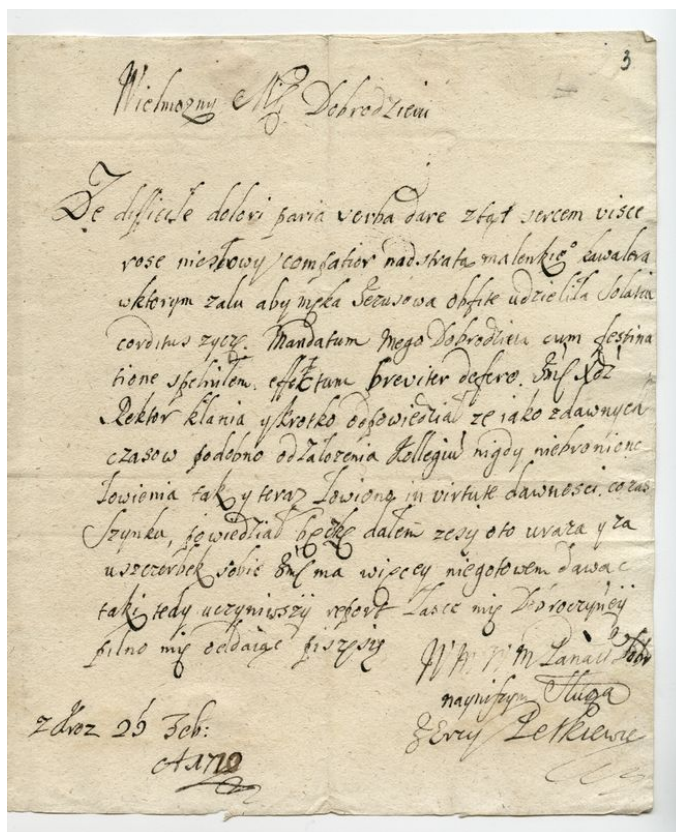 3
Wielmozny Mẞ Dobrodzieiu
Ze difficile dolori paria verba dare ztąt sercem visce
rose niesłowy compatior nad stratą malenkieo kawalera
wktorym zalu aby męka Jezusowa obfite udzieliła Solatia
corditus zyczę. Mandatum mego Dobrodzieia cum festina
tione spełniłem, effectum breviter defero. Jmć Xdz
Rektor kłania y krotko odpowiedział ze iako zdawnych
czasow podobno od zalozenia Kollegiu nigdy niebronione
Łowienia tak y teraz Łowiono in virtute dawnosci, co zas
Szynku, powiedział beckę dałem zesz oto uraza y za
uszczerbek sobie Jmć ma więcey niegotowem dawac
taki tedy uczyniwszy report Łasce mię Dobroczynęy
pilno mię oddaiąc piszęsię
WM M Pana Dobr
nayniszym Sługą
Jerzy Petkiewic
z Kroz 26 Feb:
A 1710